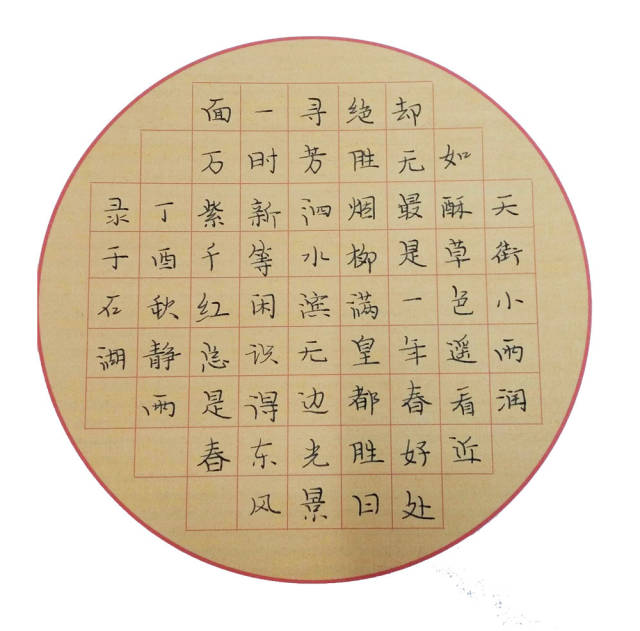 天街小雨润
如酥草色遥看近
却无最是一年春好处
绝胜烟柳满皇都胜日
寻芳泗水滨无边光景
一时新等闲识得东风
面万紫千红总是春
丁酉秋静雨
录于石湖